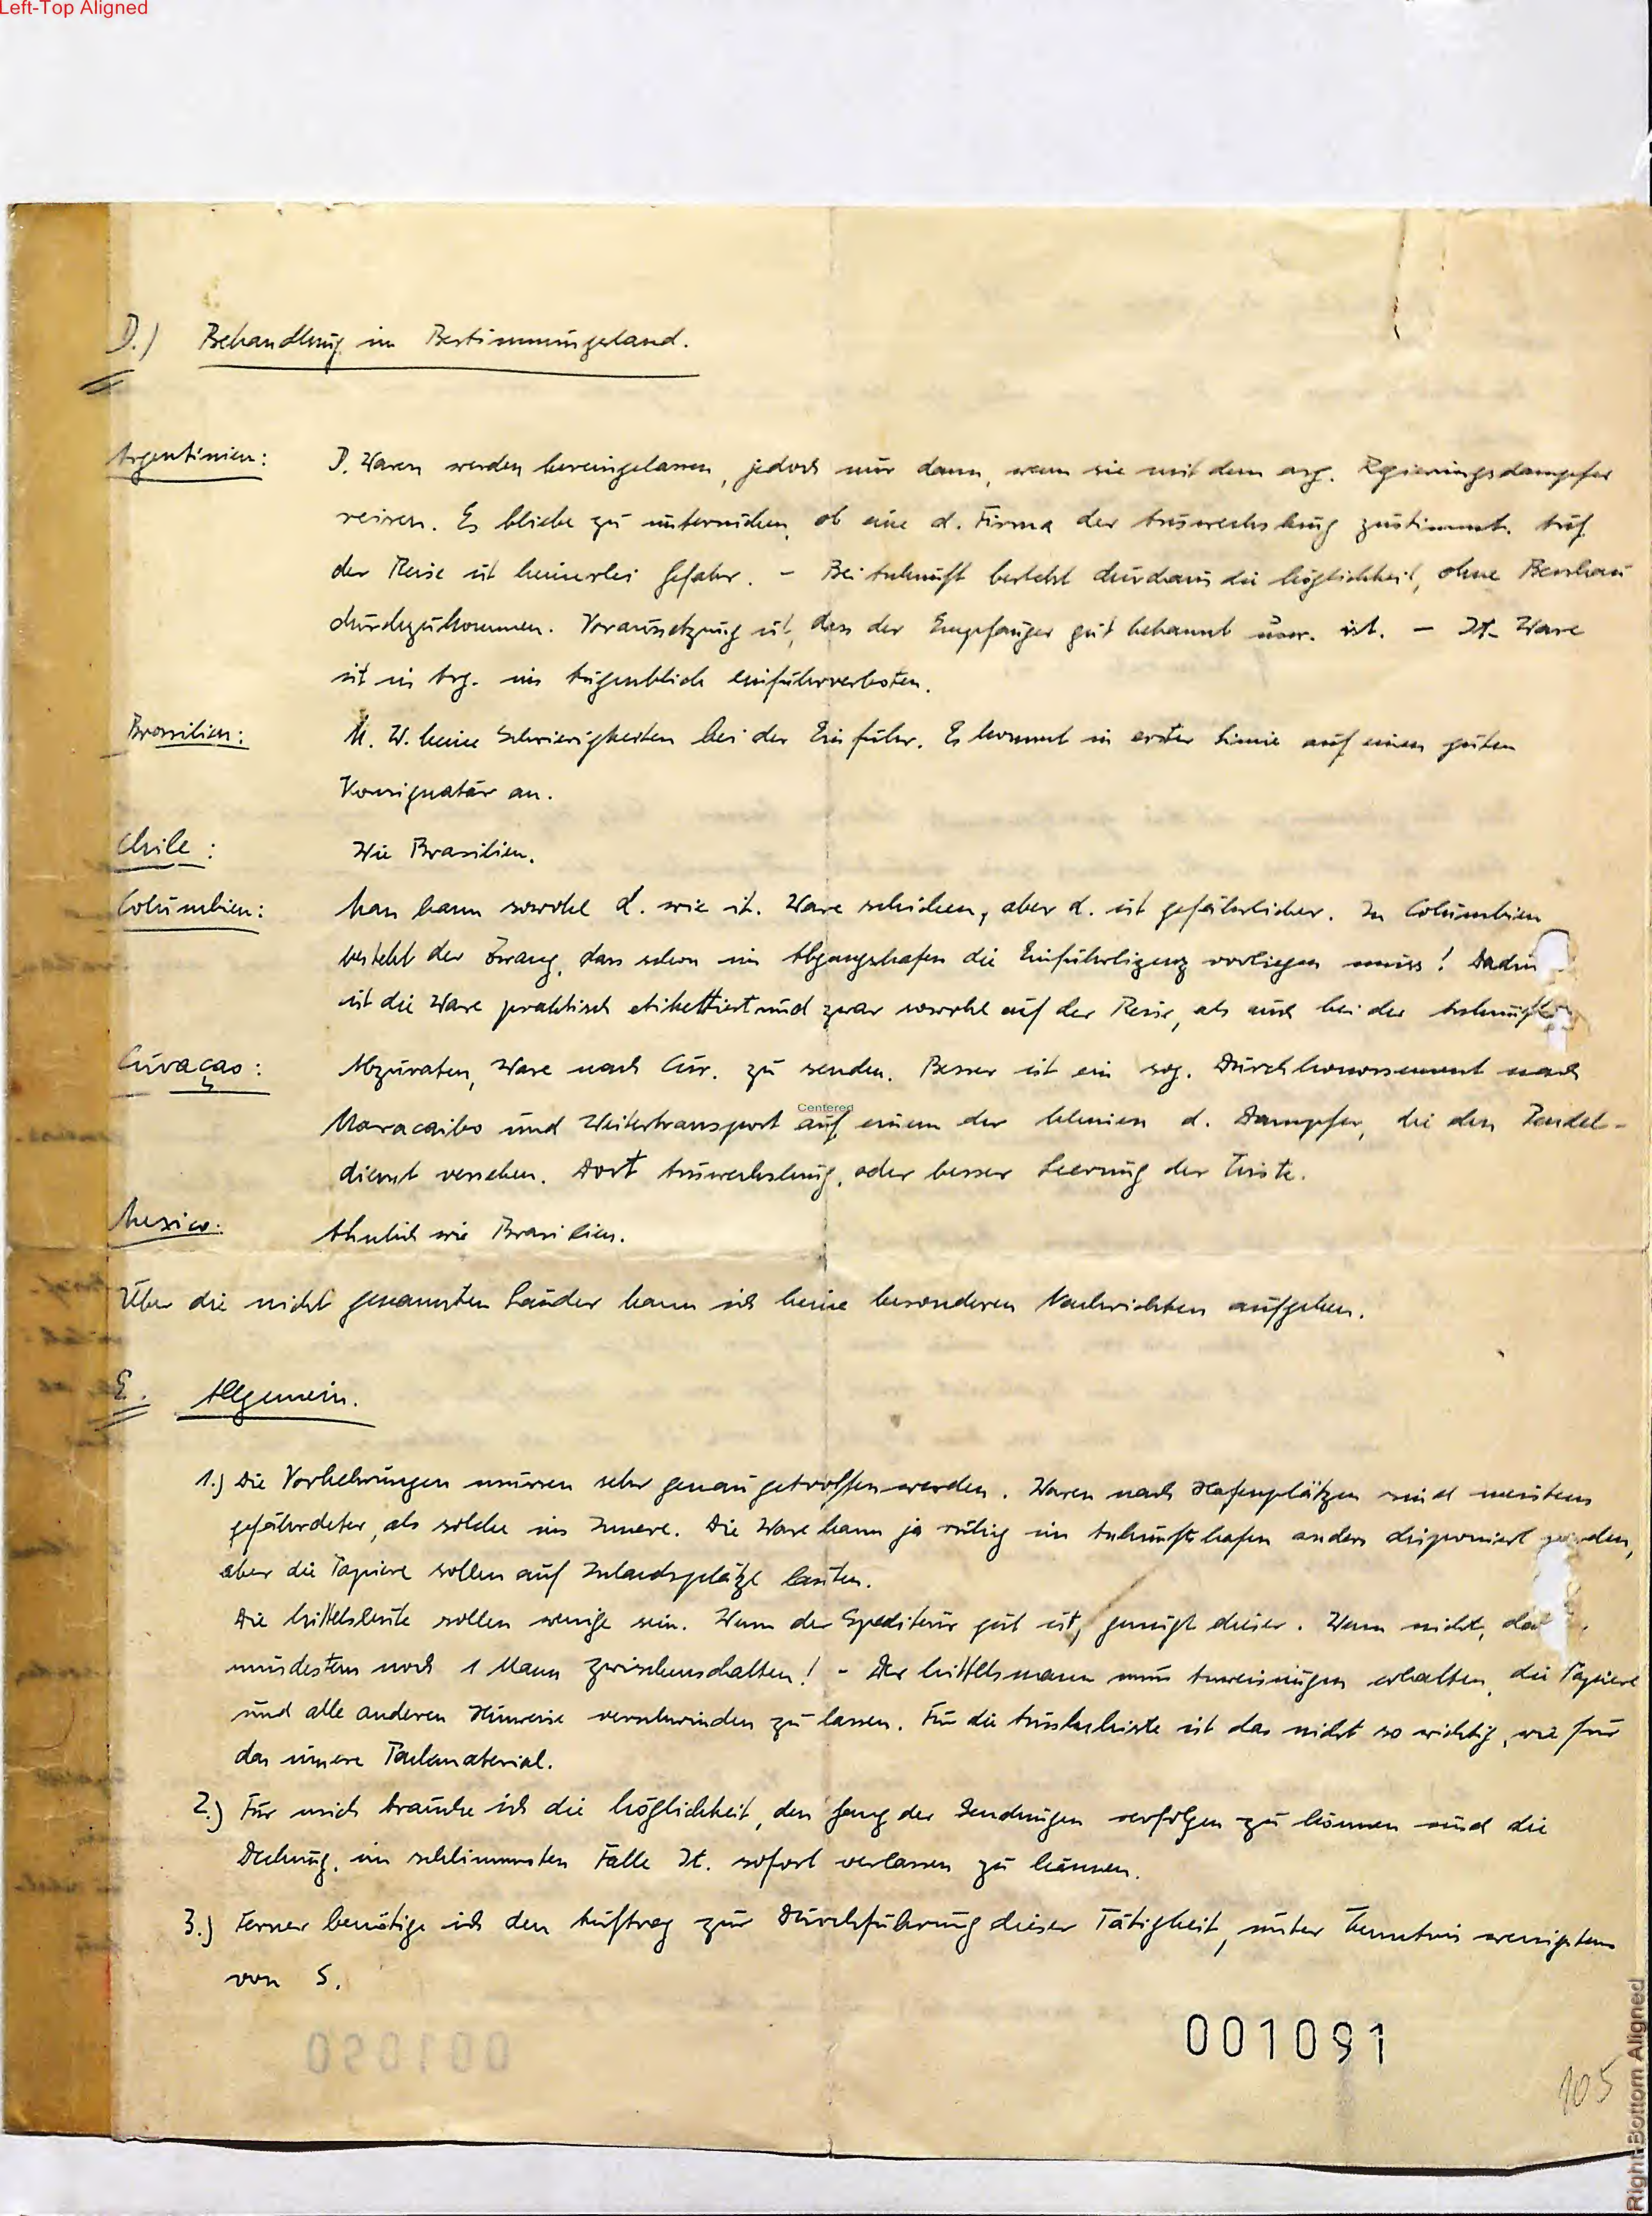 Left-Top Aligned
D.) Behandlung im Bestimmungsland.
Argentinien: D. Waren werden hereingelassen, jedoch nur dann, wenn sie mit dem arg. Regierungsdampfer
reisen. Es bliebe zu untersuchen, ob eine d. Firma der Auswechslung zustimmt. Auf
der Reise ist keinerlei Gefahr. – Bei Ankunft besteht durchaus die Möglichkeit, ohne Beschau
durchzukommen. Voraussetzung ist, dass der Empfänger gut bekannt usw. ist. – It. Ware
ist in Arg. im Augenblick einfuhrverboten.
Brasilien: M. W. keine Schwierigkeiten bei der Einfuhr. Es kommt in erster Linie auf einen guten
Konsignatär an.
Chile: Wie Brasilien.
Columbien: Man kann sowohl d. wie it. Ware schicken, aber d. ist gefährlicher. In Columbien
besteht der Zwang, dass schon im Abgangshafen die Einfuhrlizenz vorliegen muss! Dadur
ist die Ware praktisch etikettiert und zwar sowohl auf der Reise, als auch bei der Ankunft
Curaçao: Abzuraten, Ware nach Cur. zu senden. Besser ist ein sog. Durchkonossement nach
Maracaibo und Weitertransport auf einem der kleinen d. Dampfer, die den Pendel-
Centered
dienst versehen. Dort Auswechslung, oder besser Leerung der Kiste.
Mexico: Ähnlich wie Brasilien.
Über die nicht genannten Länder kann ich keine besonderen Nachrichten aufgeben.
E. Allgemein.
1.) Die Vorkehrungen müssen sehr genau getroffen werden. Waren nach Hafenplätzen sind meistens
gefährdeter, als solche ins Innere. Die Ware kann ja ruhig im Ankunftshafen anders disponiert werden,
aber die Papiere sollen auf Inlandsplätze lauten.
Die Mittelsleute sollen wenige sein. Wenn der Spediteur gut ist, genügt dieser. Wenn nicht,
mindestens noch 1 Mann zwischenschalten! – Der Mittelsmann muss Anweisungen erhalten, die Papiere
und alle anderen Hinweise verschwinden zu lassen. Für die Aussenkiste ist das nicht so wichtig, wie für
das innere Packmaterial.
2.) Für mich brauche ich die Möglichkeit, den Gang der Sendungen verfolgen zu können und die
Deckung, im schlimmsten Falle It. sofort verlassen zu können.
3.) Ferner benötige ich den Auftrag zur Durchführung dieser Tätigkeit, unter Kenntnis wenigstens
von S.
001091
001090
105
Right-Bottom Aligned